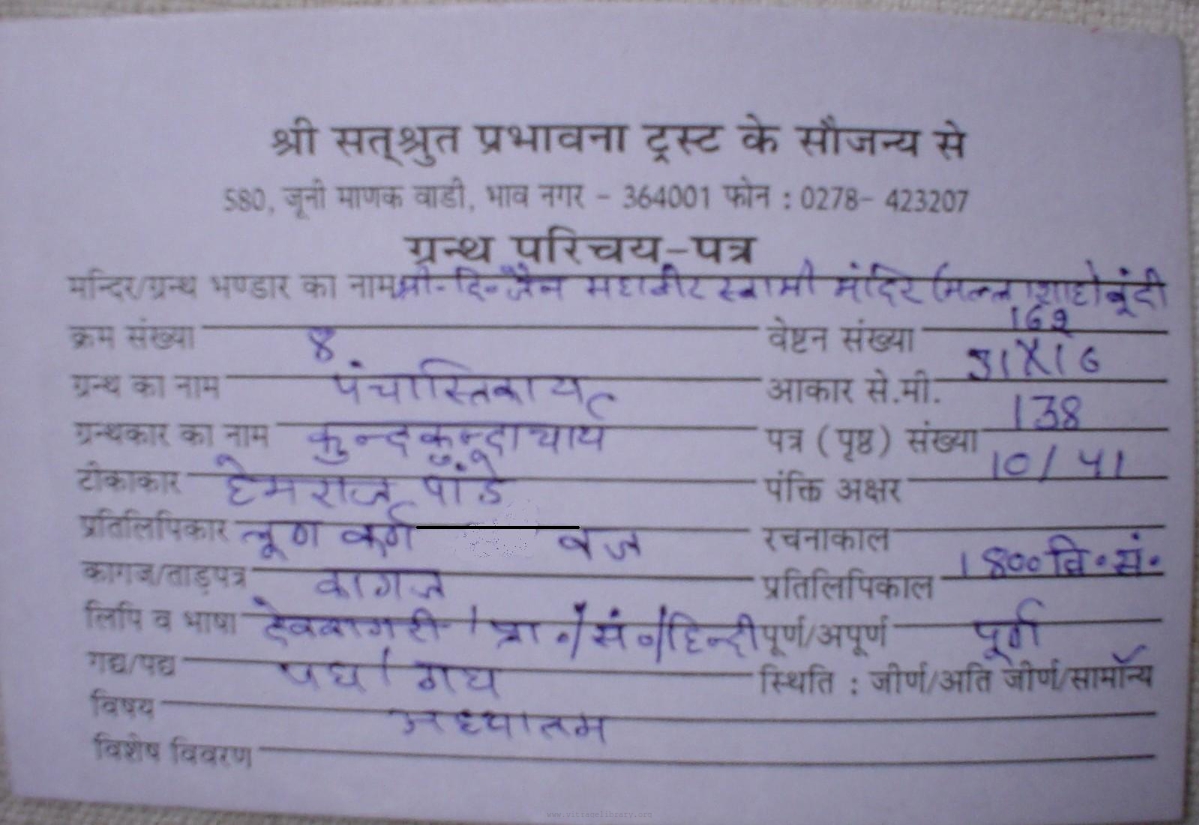 श्री सत्श्रुत प्रभावना ट्रस्ट के सौजन्य से
580, जूनी माणक वाडी, भाव नगर - 364001 फोन : 0278- 423207
ग्रन्थ परिचय-पत्र
मन्दिर/ग्रन्थ भण्डार का नाम श्री. दि. जैन महावीर स्वामी मंदिर बूंदी
क्रम संख्या 8 वेष्टन संख्या
ग्रन्थ का नाम पंचास्तिकाय आकार से.मी. 31X16
ग्रन्थकार का नाम कुन्दकुन्दाचार्य पत्र (पृष्ठ) संख्या 138
टीकाकार हेमराज पांडे पंक्ति अक्षर 10/41
प्रतिलिपिकार रचनाकाल
कागज/ताड़पत्र कागज प्रतिलिपिकाल 1800 वि.सं.
लिपि व भाषा देवनागरी / प्रा./सं./हिन्दी पूर्ण/अपूर्ण पूर्ण
गद्य/पद्य पद्य/गद्य स्थिति : जीर्ण/अति जीर्ण/सामान्य
विषय अध्यात्म
विशेष विवरण